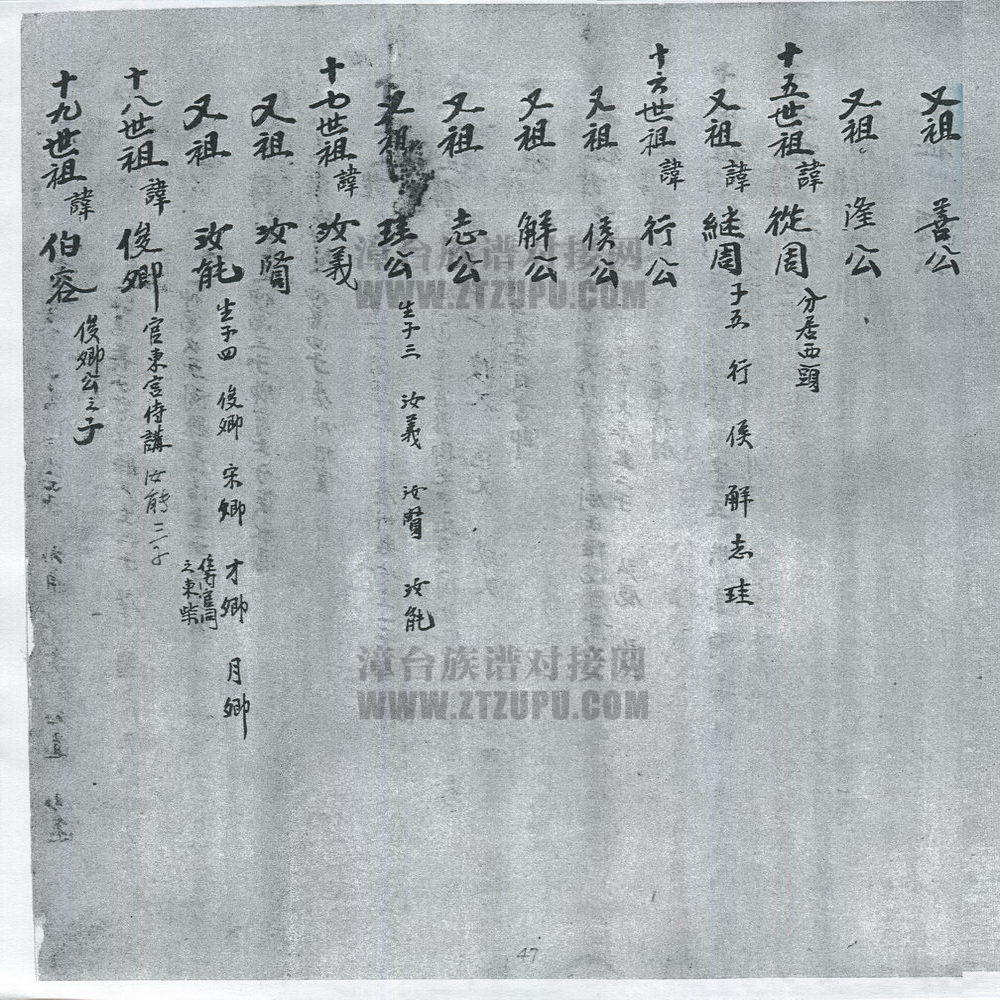 又祖 善公
又祖 隆公
十五世祖諱 從周 分居西頭
又祖諱 継周 子五 行 侯 解 志 珪
十六世祖諱 行公
又祖 侯公
又祖 解公
又祖 志公
又祖 珪公 生子三 汝義 汝賢 汝能
十七世祖諱 汝義
又祖 汝賢
又祖 汝能 生子四 俊卿 宋卿 才卿 月卿
之東柴
十八世祖諱 俊卿 官東宮侍講 汝能三子
十九世祖諱 伯容 俊卿公之子
47
漳台族谱对接网
WWW.ZTZUPU.COM
漳台族谱对接网
WWW.ZTZUPU.COM